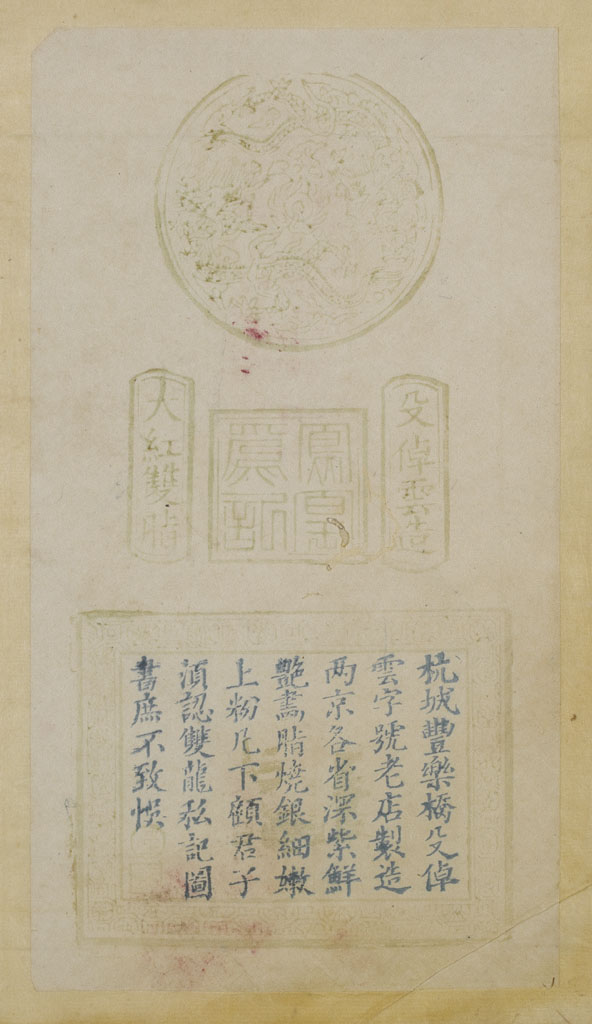 殳倬雲造
大紅雙脂
杭城豐樂橋殳倬
雲字號老店製造
两京各省深紫鮮
艷畵脂燒銀細嫩
上粉凢下顧君子
湏認雙龍私記圖
書庶不致悞